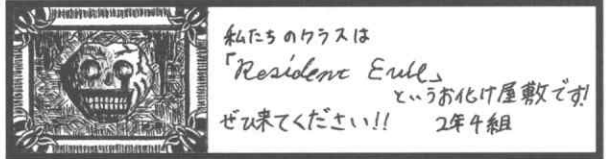 私たちのクラスは
「Resident Evil」
というお化け屋敷です!
ぜひ来てください!! 2年4組